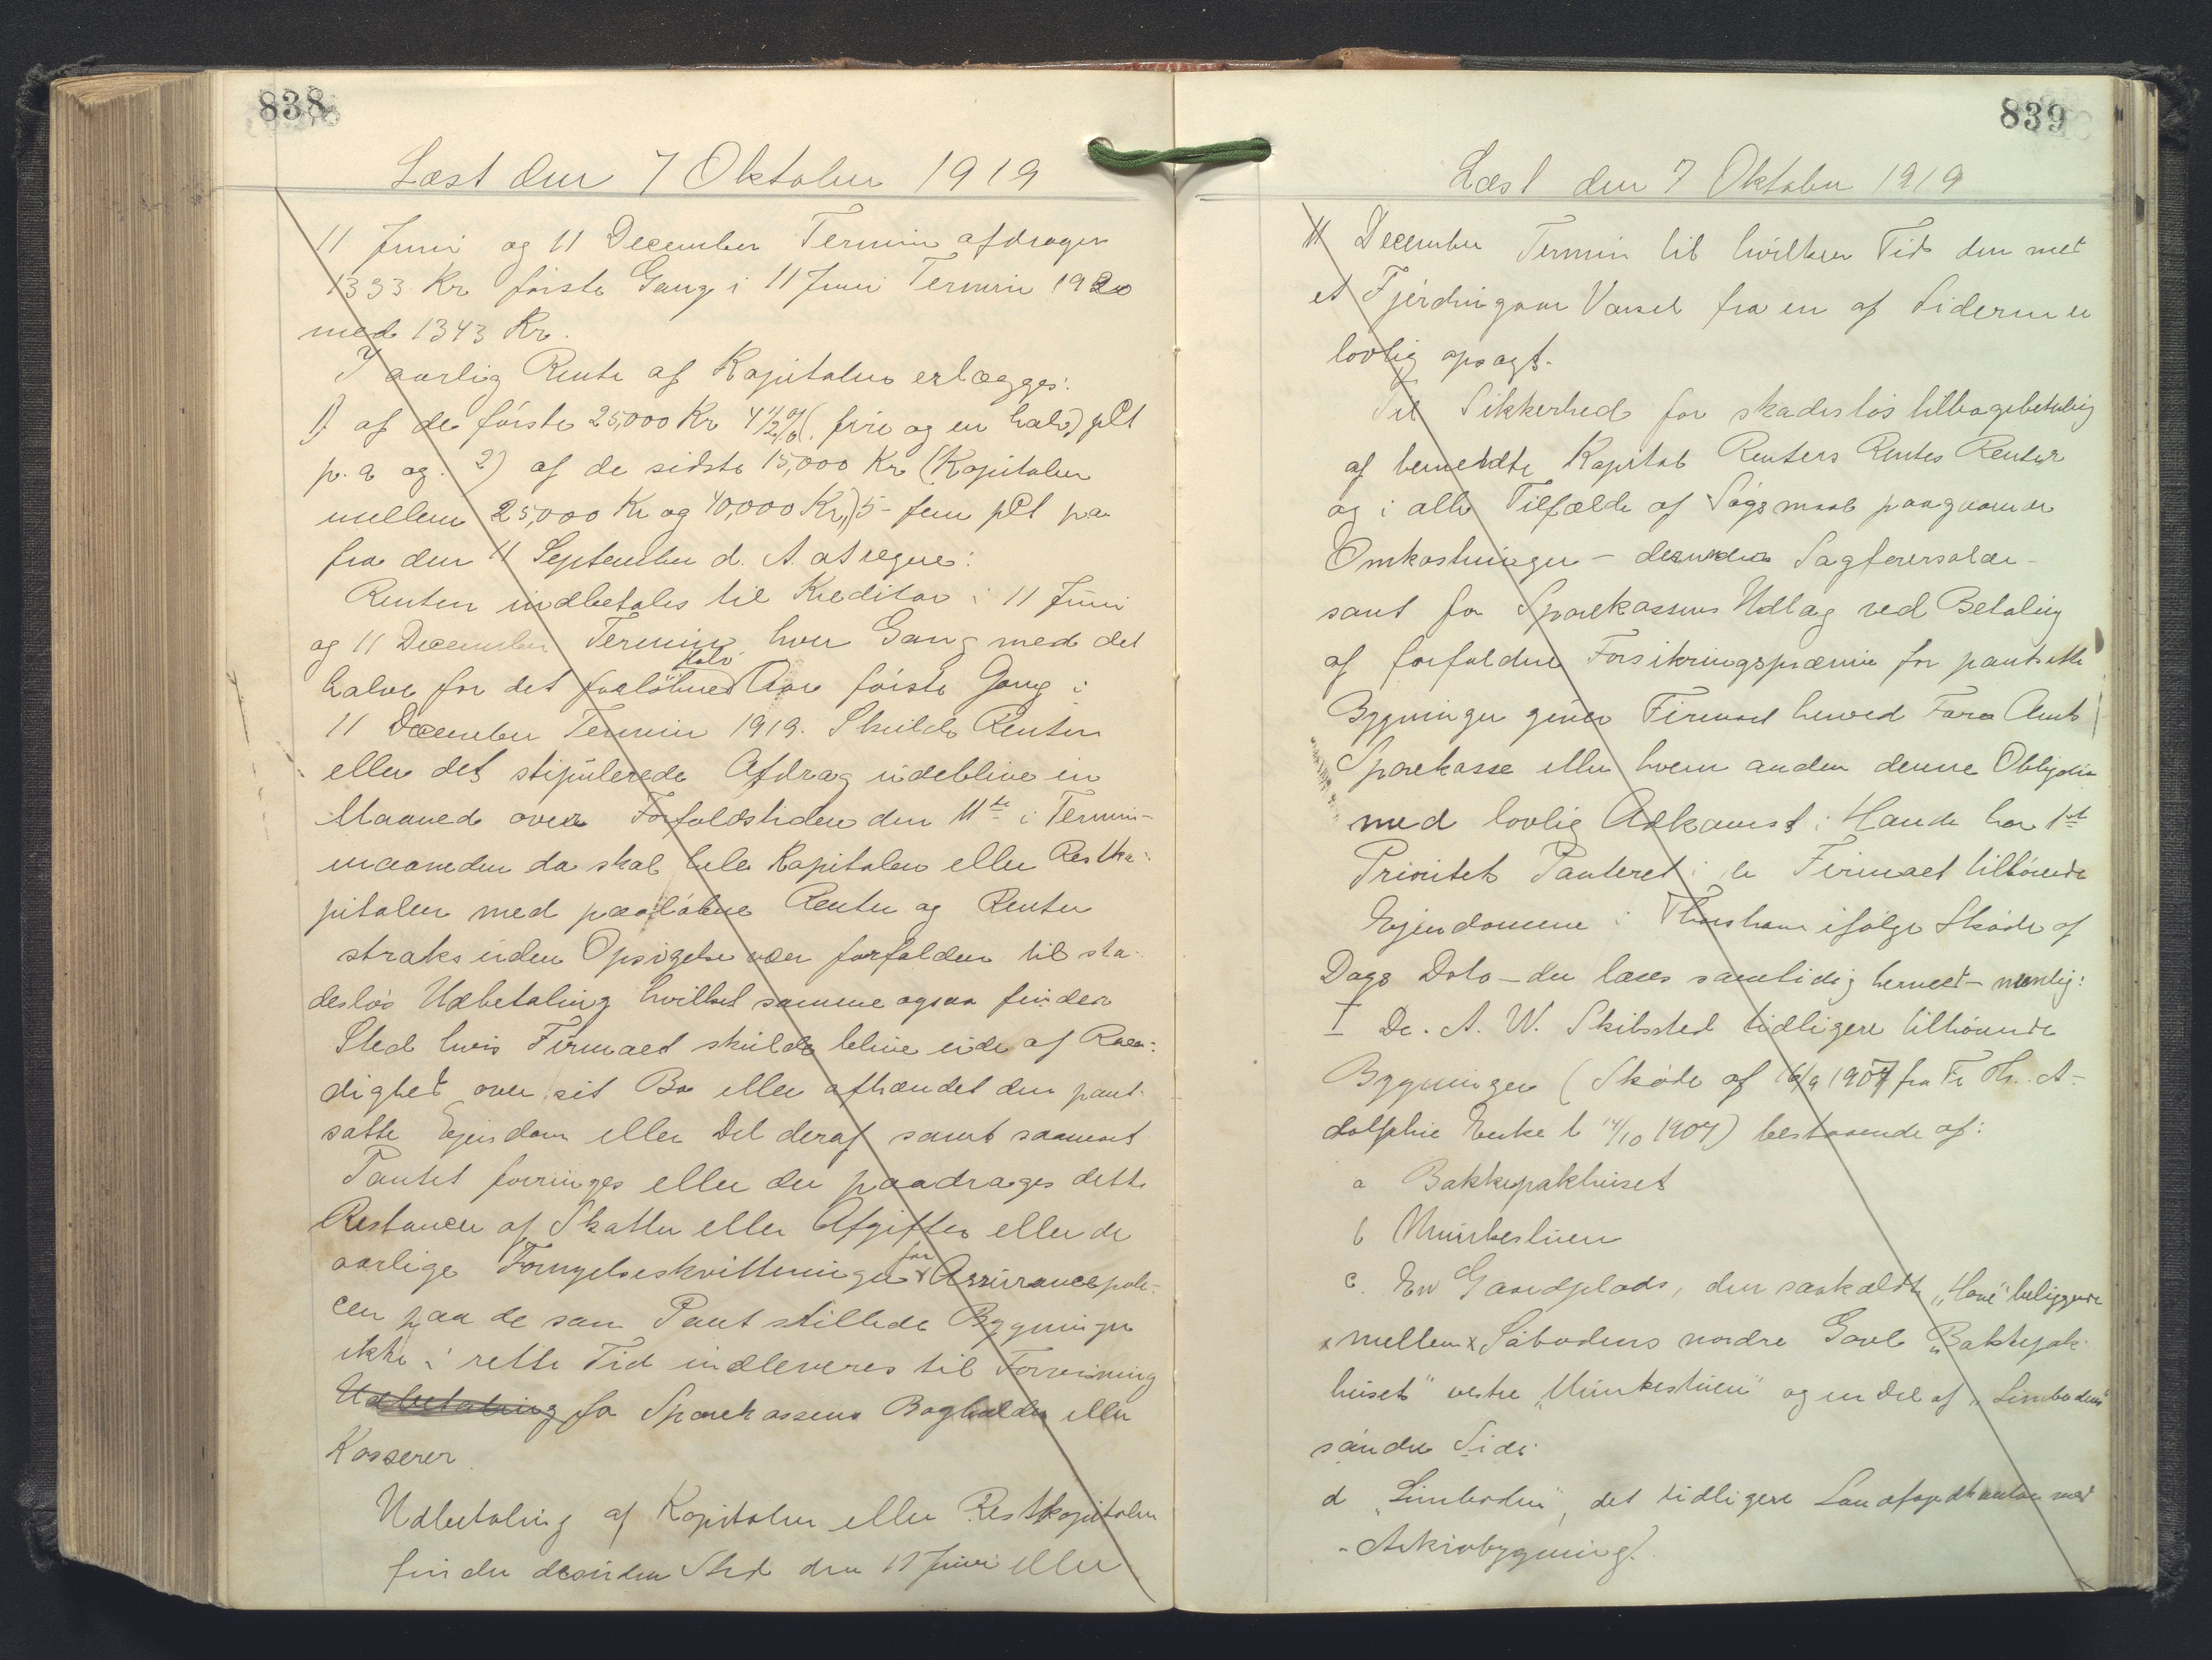 838
Læst den 7 Oktober 1919
11 Juni og 11 December Termin afdrages
1333 Kr første Gang i 11 Juni Termin 1920
med 1343 Kr.
I aarlig Rente af Kapitalen erlægges:
1) af de første 25,000 Kr 4 1/2 % (fire og en halv) pCt
p. a og. 2) af de sidste 15,000 Kr (Kapitalen
mellem 25,000 Kr og 40,000 Kr,) 5- fem pCt pa
fra den 11 September d. A. at regne:
Renten indbetales til Kreditor i 11 Juni
og 11 December Termin hver Gang med det
halve for det forløbne Halv Aar første Gang i
11 December Termin 1919. Skulde Renten
eller det stipulerede Afdrag udeblive en
Maaned over Forfaldstiden den 11te i Termin-
maaneden da skal hele Kapitalen eller Restka-
pitalen med paaløbne Renter og Renter
straks uden Opsigelse være forfalden til ska-
desløs Udbetaling hvilket samme ogsaa finder
Sted hvis Firmaet skulde blive ude af Raa-
dighed over sit Bo eller afhændet den pant-
satte Ejendom eller Del deraf samt saavant
Pantet forringes eller der paadrages dette
Restancer af Skatter eller Afgifter eller de
aarlige Fornyelseskvitteringer for Assurancepoli-
cen paa de som Pant stillede Bygninger
ikke i rette Tid indleveres til Forevisning
Udbetaling for Sparekassens Bogholder eller
Kasserer.
Udbetaling af Kapitalen eller Restkapitalen
finder desuden Sted den 11 Juni eller
839
Læst den 7 Oktober 1919
11 December Termin til hvilken Tid den med
et Fjerdingaar Varsel fra en af Siderne er
lovlig opsagt.
Til Sikkerhed for skadesløs tilbagebetaling
af bemeldte Kapital Renters Rentes Renter
og i alle Tilfælde af Søgsmaal paagaaende
Omkostninger - derunder Sagførersalær -
samt for Sparekassens Udlæg ved Betaling
af forfaldne Forsikringspræmie for pantsatte
Bygninger giver Firmaet herved Færø Amts
Sparekasse eller hvem anden denne Obligation
med lovlig Adkomst i Hænde har 1st
Prioritets Panteret i de Firmaet tilhørende
Ejendomme i Thorshavn ifølge Skøde af
Dags Dato - der læses samtidig hermed - nemlig:
I De. A. W. Skibsted tidligere tilhørende
Bygninger (Skøde af 16/9 1907 fra Fr Th. A-
dolphie Enke l 14/10 1907) bestaaende af:
a Bakkepakhuset
b Munkestuen
c. En Gaardplads, den saakaldte „Have" beliggende
x mellem x Søbodens nordre Gavl „Bakkepak-
huset" vestre „Munkestuen" og en Del af „Limboden"
søndre Side.
d „Limboden", det tidligere Landfogedkontor med
Arkivbygning.